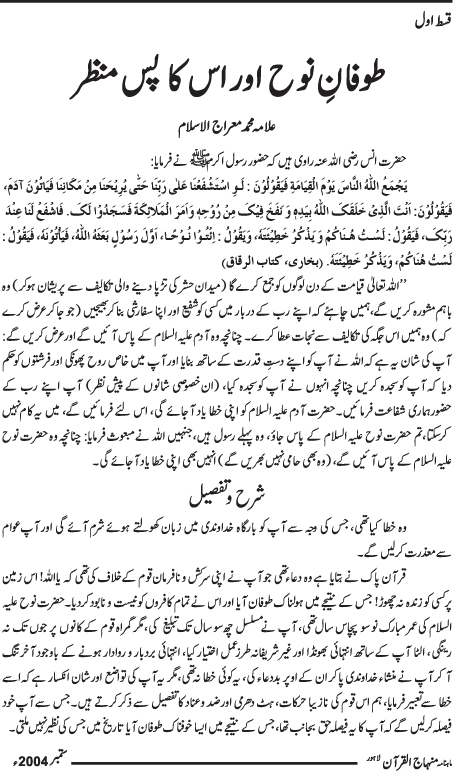 قسط اول
طوفانِ نوح اور اس کا پس منظر
علامہ محمد معراج الاسلام
حضرت انس رضی اللہ عنہ راوی ہیں کہ حضور رسول اکرم ﷺ نے فرمایا:
یَجْمَعُ اللّٰہُ النَّاسَ یَوْمَ الْقِیَامَۃِ فَیَقُوْلُوْنَ : لَوِ اسْتَشْفَعْنَا عَلٰی رَبِّنَا حَتّٰی یُرِیْحَنَا مِنْ مَکَانِنَا فَیَاتُوْنَ آدَمَ،
فَیَقُوْلُوْنَ: اَنْتَ الَّذِیْ خَلَقَکَ اللّٰہُ بِیَدِہٖ وَ نَفَخَ فِیْکَ مِنْ رُوْحِہٖ وَاَمَرَ الْمَلَائِکَۃَ فَسَجَدُوْا لَکَ۔ فَاشْفَعْ لَنَا عِنْدَ
رَبِّکَ، فَیَقُوْلُ: لَسْتُ ھُنَاکُمْ وَیَذْکُرُ خَطِیْئَتَہٗ، وَیَقُوْلُ : اِئْتُوْا نُوْحًا، اَوَّلَ رَسُوْلٍ بَعَثَہُ اللّٰہُ، فَیَأْتُوْنَہٗ، فَیَقُوْلُ :
لَسْتُ ھُنَاکُمْ، وَیَذْکُرُ خَطِیْئَتَہٗ. (بخاری، کتاب الرقاق)
’’اللہ تعالیٰ قیامت کے دن لوگوں کو جمع کرے گا (میدان حشر کی تڑپا دینے والی تکالیف سے پریشان ہو کر) وہ
باہم مشورہ کریں گے، ہمیں چاہئے کہ اپنے رب کے دربار میں کسی کو شفیع اور اپنا سفارشی بنا کر بھیجیں (جو جا کر عرض کرے
کہ) وہ ہمیں اس جگہ کی تکالیف سے نجات عطا کرے۔ چنانچہ وہ آدم علیہ السلام کے پاس آئیں گے اور عرض کریں گے:
آپ کی شان یہ ہے کہ اللہ نے آپ کو اپنے دستِ قدرت کے ساتھ بنایا اور آپ میں خاص روح پھونکی اور فرشتوں کو حکم
دیا کہ آپ کو سجدہ کریں چنانچہ انہوں نے آپ کو سجدہ کیا، (ان خصوصی شانوں کے پیش نظر) آپ اپنے رب کے
حضور ہماری شفاعت فرمائیں۔ حضرت آدم علیہ السلام کو اپنی خطا یاد آجائے گی، اس لئے فرمائیں گے، میں یہ کام نہیں
کرسکتا، تم حضرت نوح علیہ السلام کے پاس جاؤ، وہ پہلے رسول ہیں، جنہیں اللہ نے مبعوث فرمایا: چنانچہ وہ حضرت نوح
علیہ السلام کے پاس آئیں گے، (وہ بھی حامی نہیں بھریں گے) انہیں بھی اپنی خطا یاد آجائے گی۔
شرح و تفصیل
وہ خطا کیا تھی، جس کی وجہ سے آپ کو بارگاہ خداوندی میں زبان کھولتے ہوئے شرم آئے گی اور آپ عوام
سے معذرت کرلیں گے۔
قرآن پاک نے بتایا ہے وہ دعاء تھی جو آپ نے اپنی سرکش و نافرمان قوم کے خلاف کی تھی کہ یا اللہ! اس زمین
پر کسی کو زندہ نہ چھوڑ! جس کے نتیجے میں ہولناک طوفان آیا اور اس نے تمام کافروں کو نیست و نابود کردیا۔ حضرت نوح علیہ
السلام کی عمر مبارک نو سو پچاس سال تھی، آپ نے مسلسل چھ سو سال تک تبلیغ کی، مگر گمراہ قوم کے کانوں پر جوں تک نہ
رینگی، الٹا آپ کے ساتھ انتہائی بھونڈا اور غیر شریفانہ طرز عمل اختیار کیا، انتہائی بردبار و روادار ہونے کے باوجود آخر تنگ
آ کر آپ نے منشاء خداوندی پا کر ان کے اوپر بددعاء کی، یہ کوئی خطا نہ تھی، مگر یہ آپ کی تواضع اور شان انکسار ہے کہ اسے
خطا سے تعبیر فرمایا، ہم اس قوم کی نازیبا حرکات، ہٹ دھرمی اور ضد و عناد کا تفصیل سے ذکر کرتے ہیں۔ جس سے آپ خود
فیصلہ کرلیں گے کہ آپ کا یہ فیصلہ حق بجانب تھا، جس کے نتیجے میں ایسا خوفناک طوفان آیا تاریخ میں جس کی نظیر نہیں ملتی۔
ماہنامہ منہاج القرآن لاہور ستمبر 2004ء